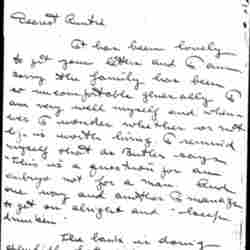 Dearest Auntie
It has been lovely
to get your letters and I am
sorry the family has been
so uncomfortable generally. I
am very well myself and when-
ever I wonder whether or not
life is worth living I remind
myself that as Butler says
"This is a question for an
embryo not for a man." And
one way and another I manage
to get on abright and sleep
drunken.
The bank is doing